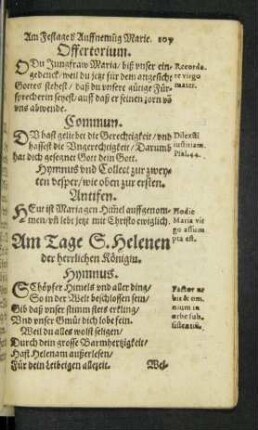 Am Festage d' Auffnemūg Marie. 107
Offertorium.
O Du Jungfraw Maria / biß vnser ein-
gedenck / weil du jetzt für dem angesicht
Gottes stehest / daß du vnsere gütige Für-
sprecherin seyest / auff daß er seinen zorn vō
vns abwende.
Recorda-
re virgo
mater.
Commun.
DV hast geliebt die Gerechtigkeit / vnd
hassest die Vngerechtigkeit / Darumb
hat dich gesegnet Gott dein Gott.
Dilexisti
iustitiam.
Psal. 44.
Hymnus vnd Collect zur zwey-
ten vesper / wie oben zur ersten.
Antifen.
HEut ist Maria gen Himel auffgenom-
men / vñ lebt jetz mit Christo ewiglich.
Hodie
Maria vir
go assum
pta est.
Am Tage S. Helenen
der herrlichen Königin.
Hymnus.
SChöpfer Himels vnd aller ding /
So in der Welt beschlossen sein /
Gib daß vnser stimm stets erkling /
Vnd vnser Gmüt dich lobe fein.
Weil du alles wolst seligen /
Durch dein grosse Barmhertzigkeit /
Hast Helenam außerlesen /
Für dein Leibeigen allezeit. Wel-